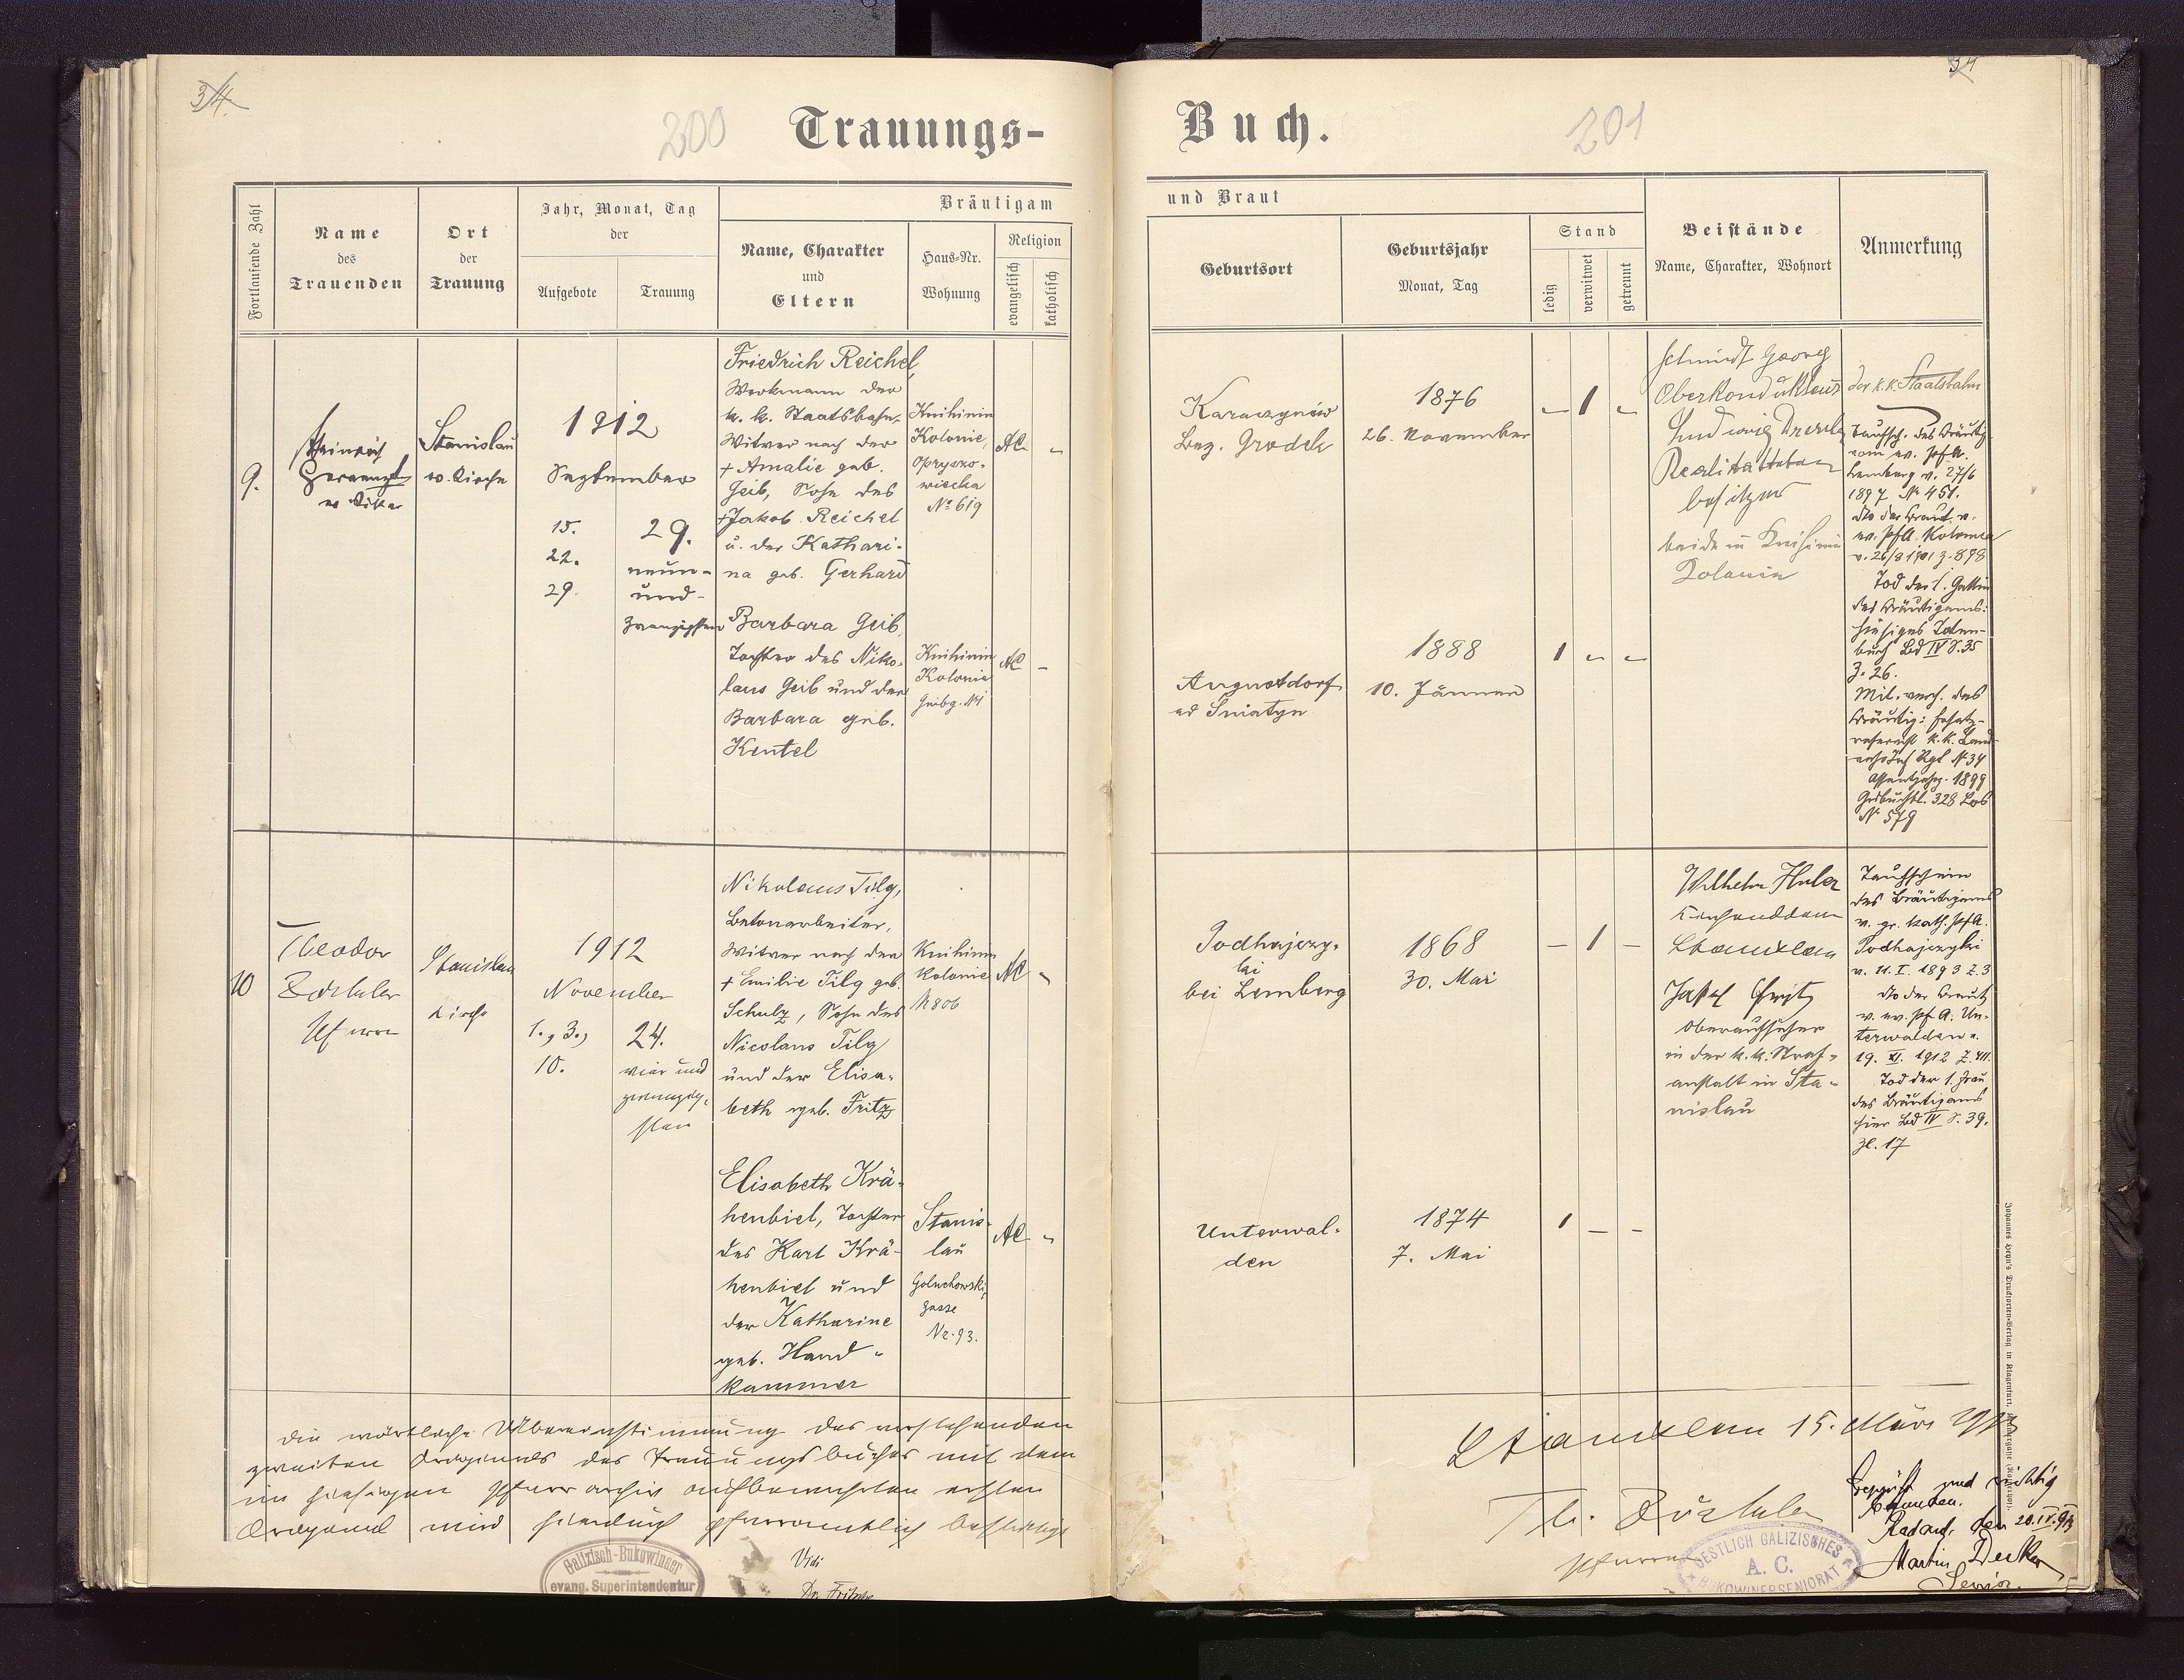 34.
200
Trauungs-
Fortlaufende Zahl
Name
des
Trauenden
Ort
der
Trauung
Jahr, Monat, Tag
der
Aufgebote
Trauung
Bräutigam
Name, Charakter
und
Eltern
Haus-Nr.
Wohnung
Religion
evangelisch
katholisch
9.
Heinrich
Stanislau
ev. Kirche
1912
September
15.
22.
29.
29.
neun-
und-
zwanzigsten
Friedrich Reichel,
Werkmann der
k. k. Staatsbahn,
Witwer nach der
+ Amalie geb.
Geib, Sohn des
+ Jakob Reichel
u. der Kathari-
na geb. Gerhard
Knihinin
Kolonie,
Opryszo-
wiecka
No 619
AC -
Barbara Geib,
Tochter des Niko-
laus Geib und der
Barbara geb.
Kentel
Knihinin
Kolonie
Geibg. No 1
AC -
10
Theodor
Zöckler
Pfarrer
Stanislau
Kirche
1912
November
1., 3.,
10.
24.
vier und
zwanzig-
sten
Nikolaus Tilg,
Betonarbeiter,
Witwer nach der
+ Emilie Tilg geb.
Schulz, Sohn des
Nicolaus Tilg
und der Elisa-
beth geb. Fritz
Knihinin
Kolonie
N 806
AC -
Elisabeth Krä-
henbiel, Tochter
des Karl Krä-
henbiel und
der Katharine
geb. Hand-
kammer
Stanis-
lau
Goluchowski-
gasse
Nr. 93.
AC -
Die wörtliche Übereinstimmung des vorstehenden
zweiten Originales des Trauungsbuches mit dem
im hiesigen Pfarrarchiv aufbewahrten ersten
Original wird hiedurch pfarramtlich bestätigt
Galizisch-Bukowiner
evang. Superintendentur
Vidi
Dr. Fritsche
34
Buch.
201
und Braut
Geburtsort
Geburtsjahr
Monat, Tag
Stand
ledig
verwitwet
getrennt
Beistände
Name, Charakter, Wohnort
Anmerkung
Karaczynów
Bez. Grodek
1876
26. November
- 1 -
Schmidt Georg
Oberkondukteur
Ludwig Drexler
Realitäten
besitzer
beide in Knihinin
Kolonie
der k.k. Staatsbahn
Taufsch. des Bräutig.
vom ev. PfA.
Lemberg v. 27/6
1897 No 451.
dto der Braut v.
ev. PfA. Kolomea
Tod der 1. Gattin
des Bräutigams:
hiesiges Toten-
buch Bd IV S. 35
Z. 26.
Mil. verh. des
Bräutig: Ersatz-
reservist k.k. Land-
Assentjahr. 1899
Grdbuchbl. 328 Los
No 579
Augustdorf
ad Sniatyn
1888
10. Jänner
1 - -
Podhajczy-
ki
bei Lemberg
1868
30. Mai
- 1 -
Wilhelm Huber
Kirchendiener
Stanislau
Josef Fritz
Oberaufseher
in der k.k. Straf-
anstalt in Sta-
nislau
Taufschein
des Bräutigams
v. gr. kath. PfA.
Podhajczyki
v. 11. I. 1893 Z. 3
dto der Braut
v. ev. Pf A. Un-
terwalden v.
19. XI. 1912 Z. 411.
Tod der 1. Frau
des Bräutigams
hier Bd IV S. 39.
Zl. 17
Unterwal-
den
1874
7. Mai
1 - -
Stanislau 15. März 1913
Th. Zöckler
Pfarrer
OESTLICH GALIZISCHES
A. C.
BUKOWINERSENIORAT
Geprüft und richtig
befunden.
Radautz, den 20.IV.913
Martin Decker
Senior.